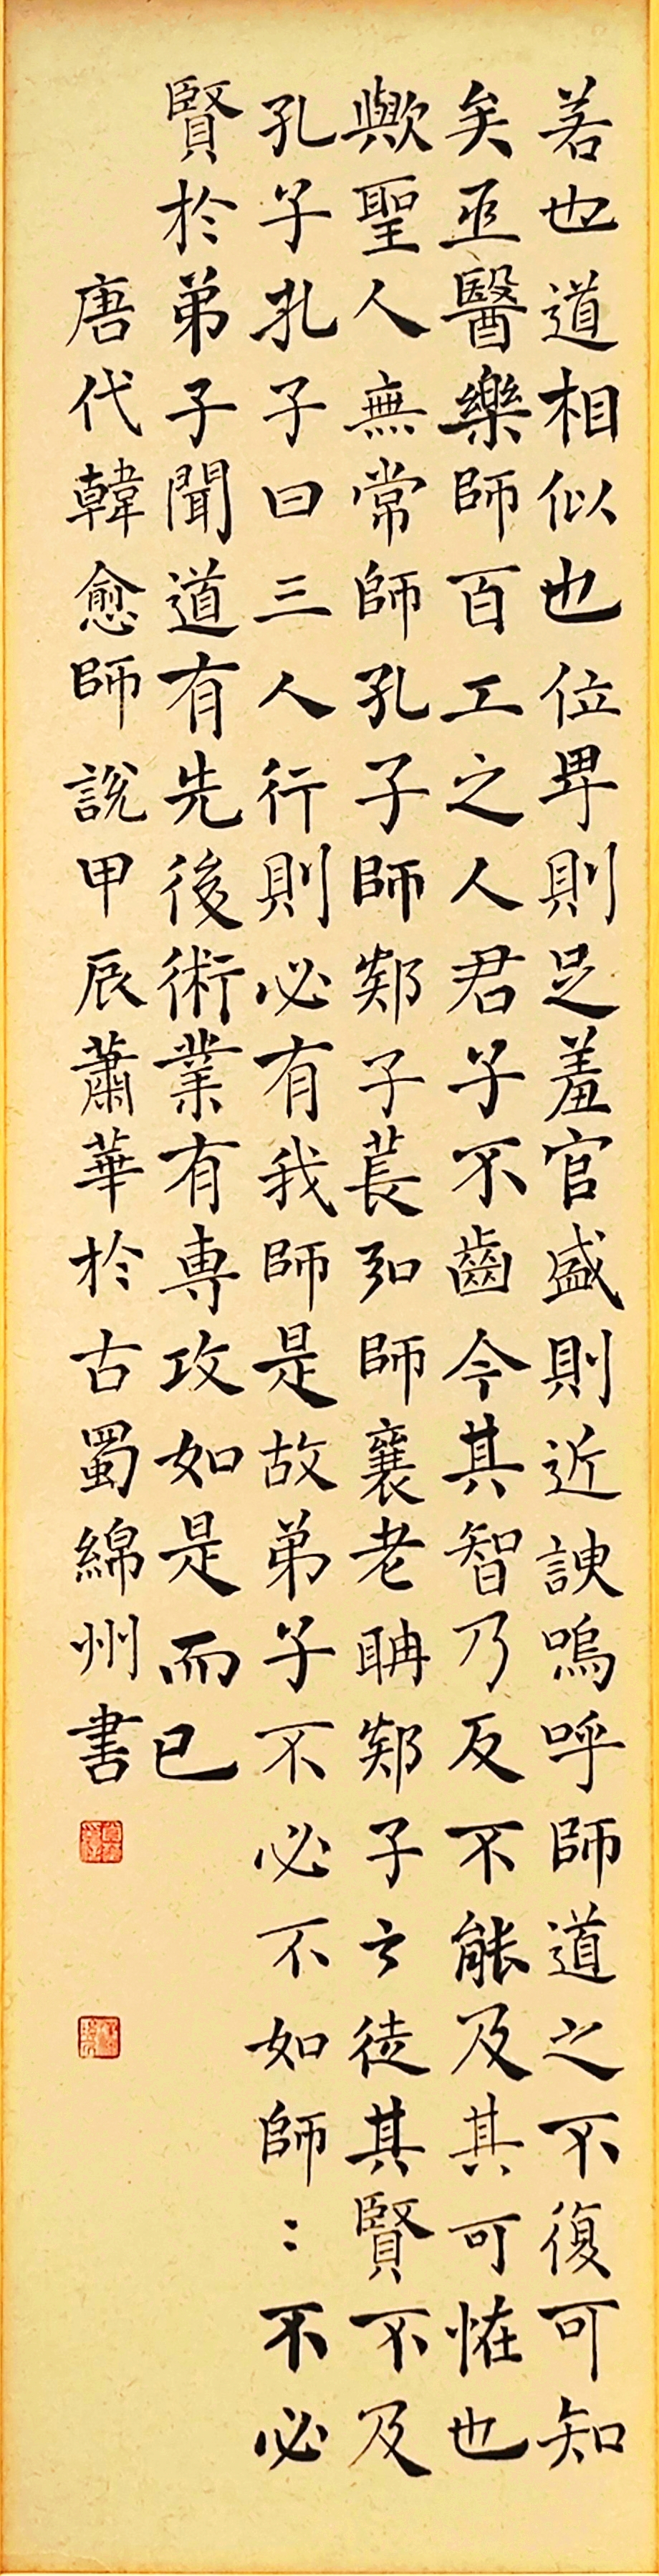 若也道相似也位卑則足羞官盛則近諛嗚呼師道之不復可知
矣巫醫樂師百工之人君子不齒今其智乃反不能及其可恠也
歟聖人無常師孔子師郯子萇弘師襄老聃郯子之徒其賢不及
孔子孔子曰三人行則必有我師是故弟子不必不如師〻不必
賢於弟子聞道有先後術業有專攻如是而已
唐代韓愈師說甲辰蕭華於古蜀綿州書